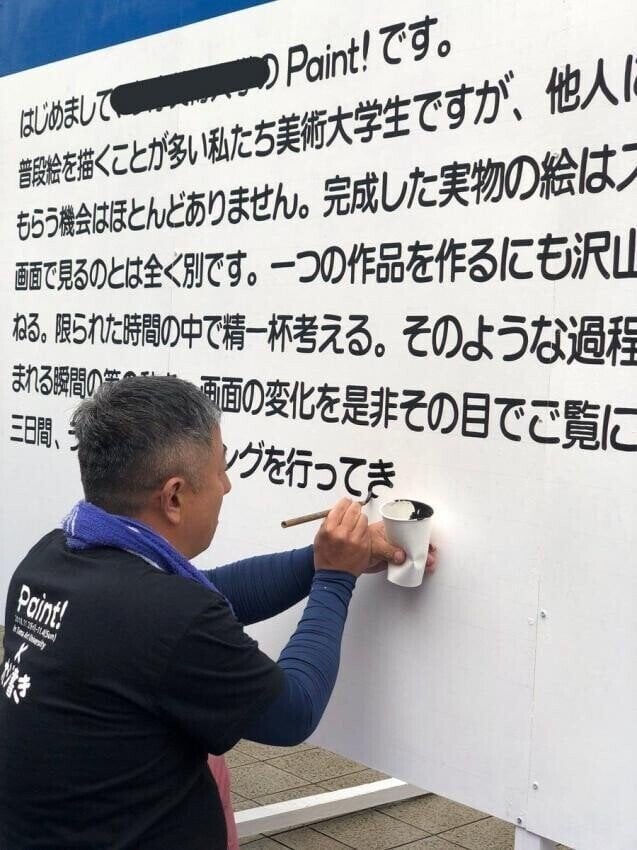 はじめまして、のPaint!です。
普段絵を描くことが多い私たち美術大学生ですが、他人に
もらう機会はほとんどありません。完成した実物の絵はス
画面で見るのとは全く別です。一つの作品を作るにも沢山
ねる。限られた時間の中で精一杯考える。そのような過程
まれる瞬間の 画面の変化を是非その目でご覧に
三日間、 ングを行ってき
Paint!
in Tama Art University
×
書き